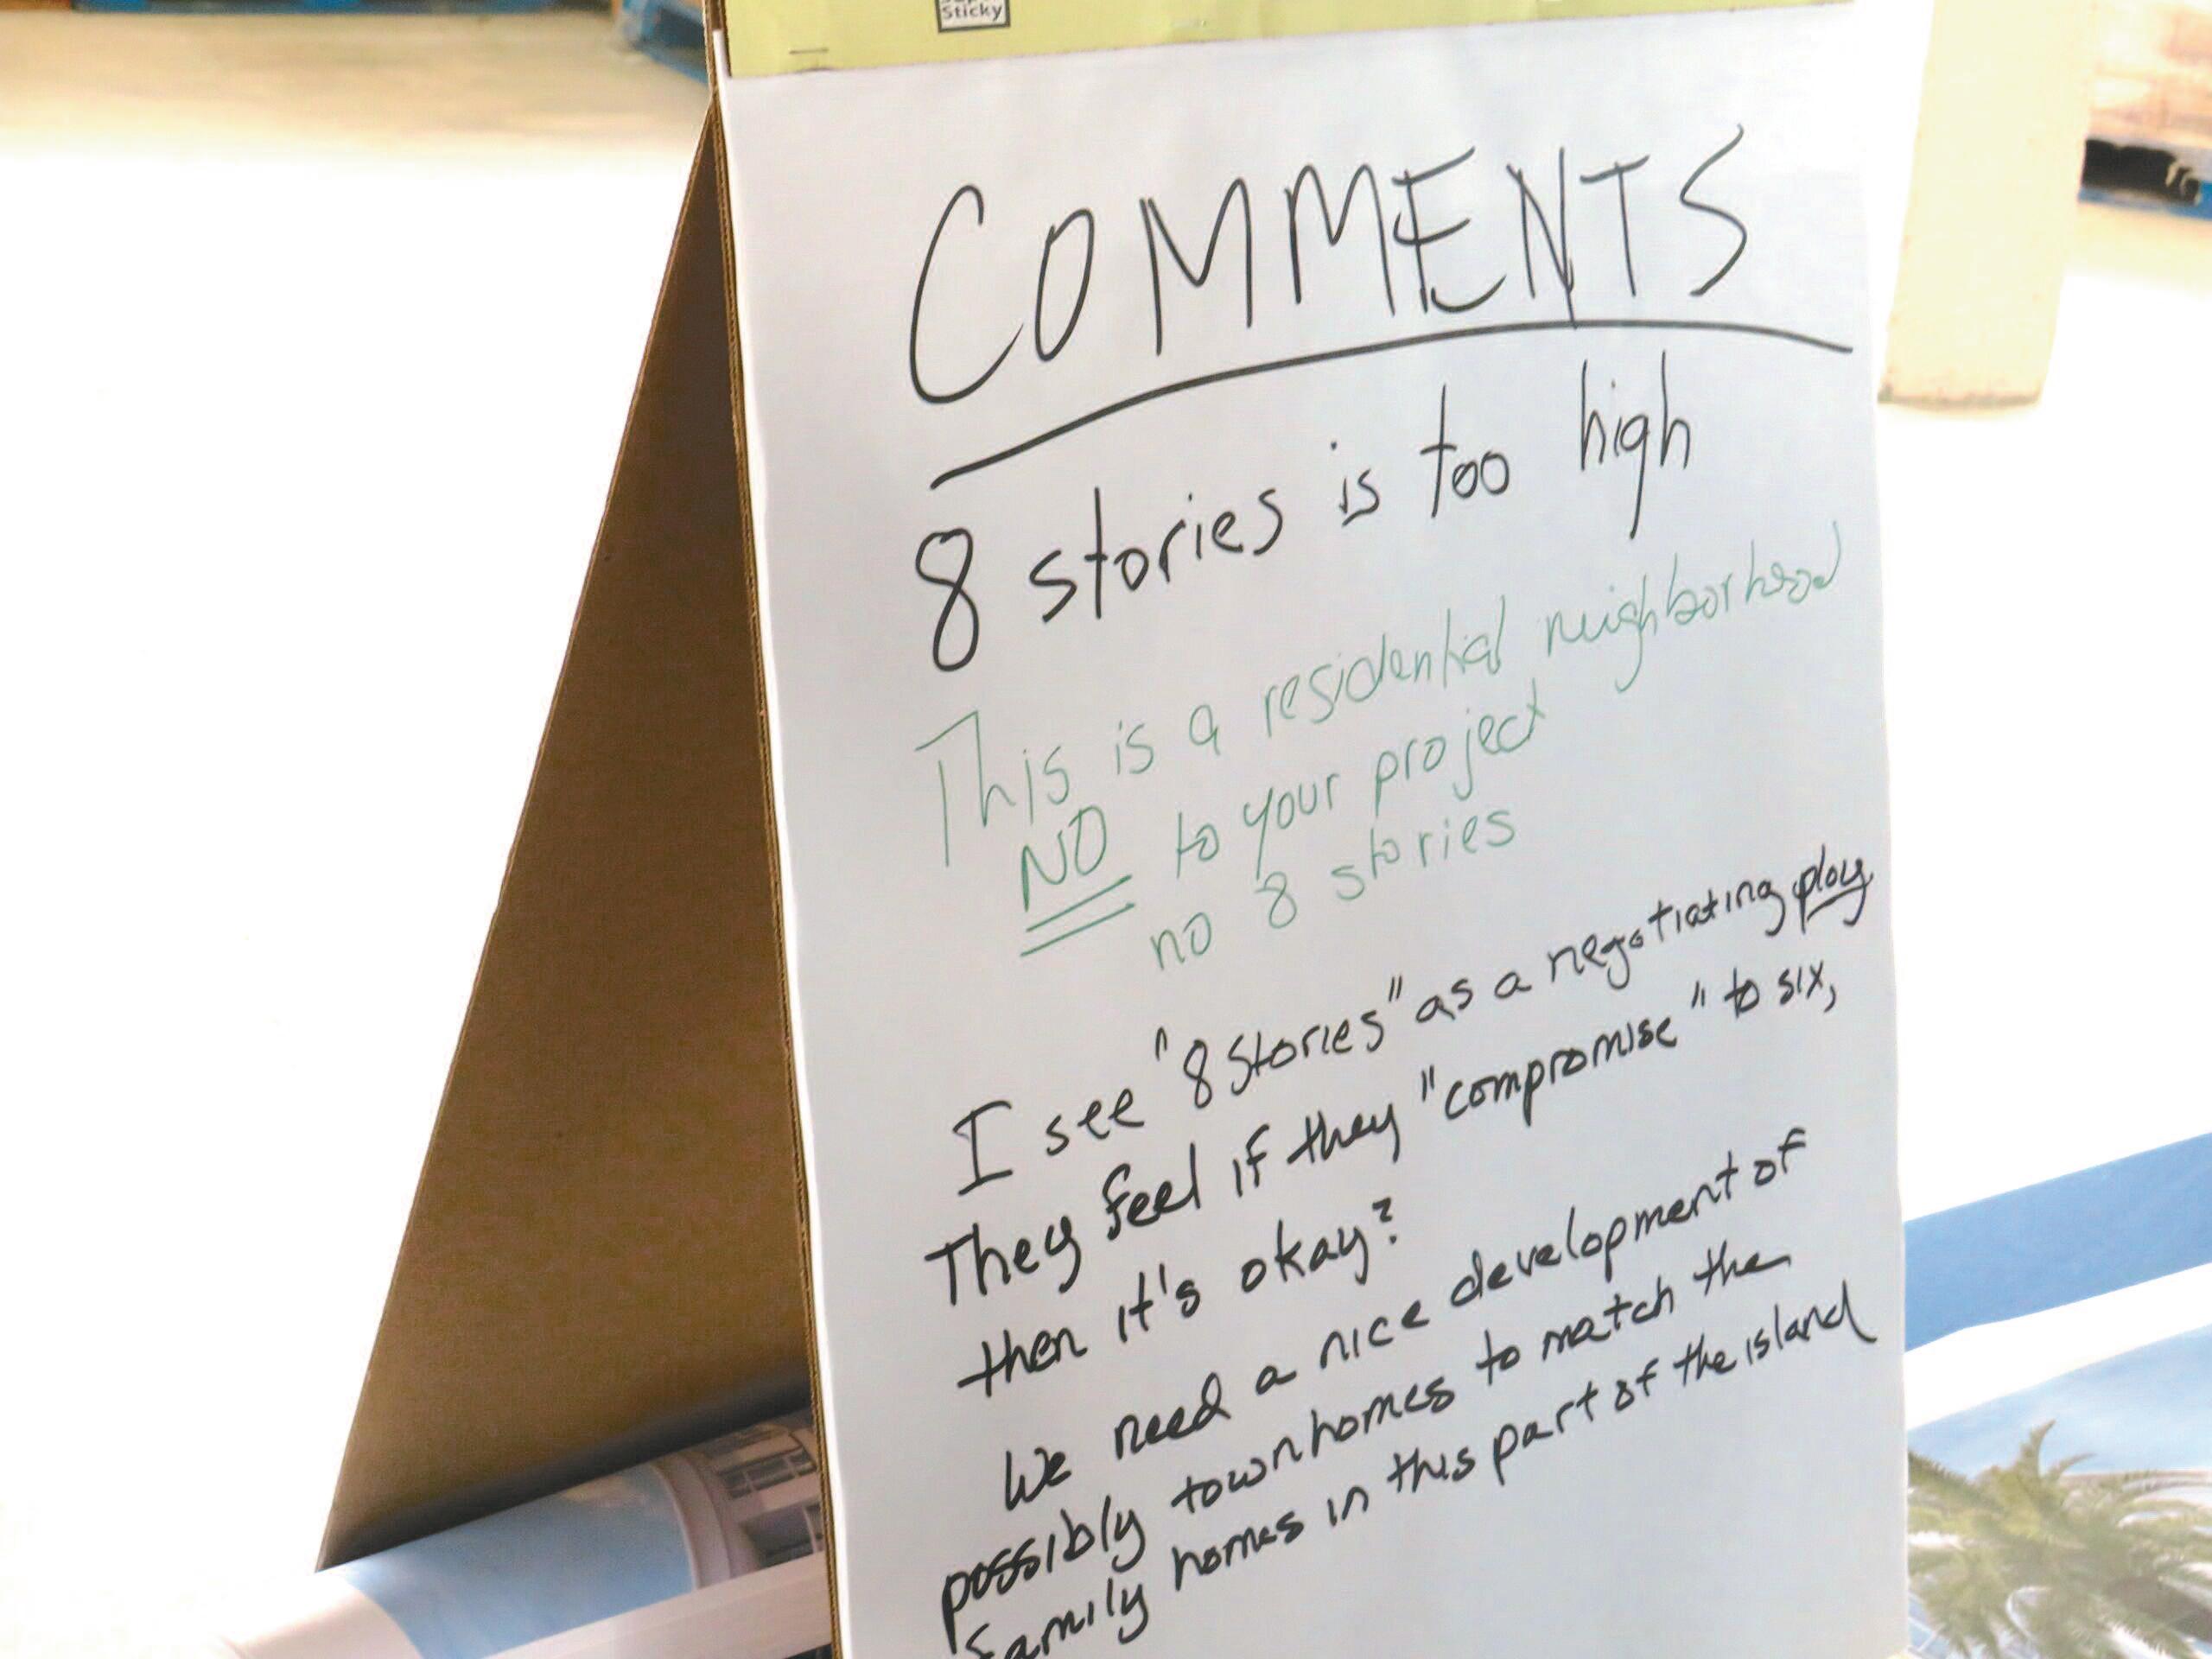 Sticky
COMMENTS
8 stories is too high
This is a residential neighborhood
NO to your project
no 8 stories
I see "8 Stories" as a negotiating ploy
They feel if they "compromise" to six,
then it's okay?
We need a nice development of
possibly townhomes to match the
family homes in this part of the island